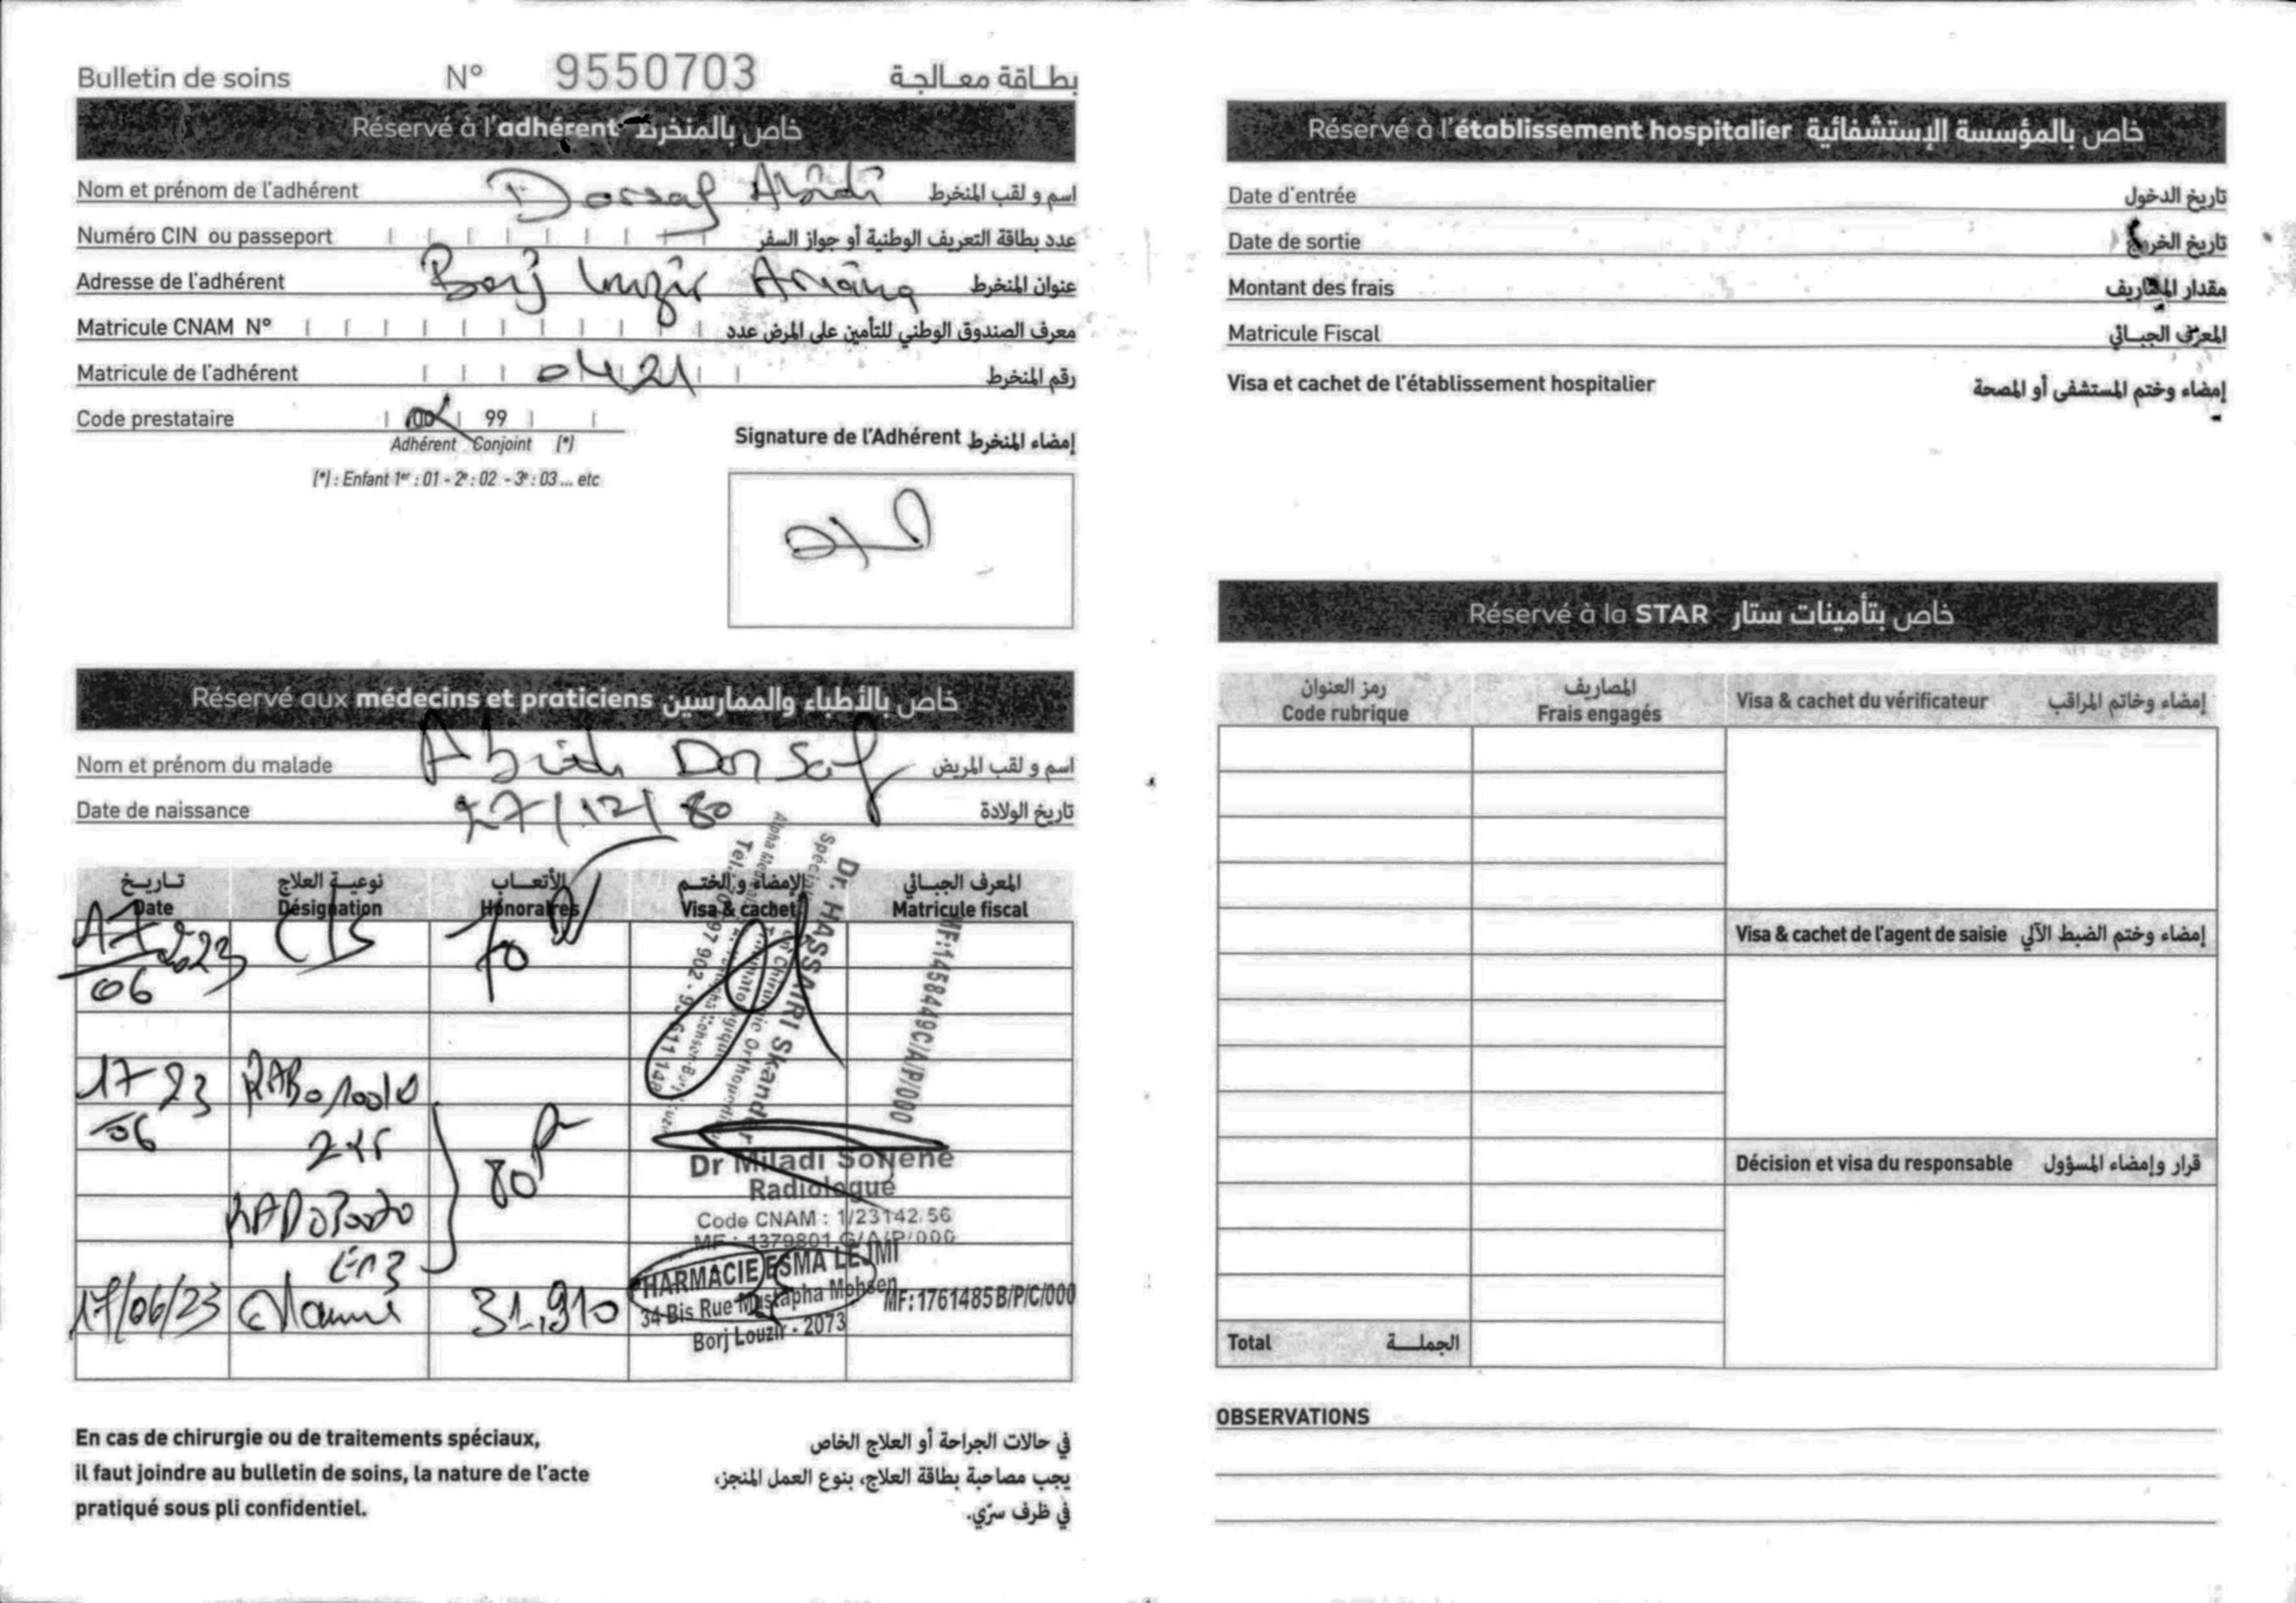 Bulletin de soins N° 9550703 بطاقة معالجة
Réservé à l'adhérent خاص بالمنخرط
Nom et prénom de l'adhérent Dorsaf Abidi اسم و لقب المنخرط
Numéro CIN ou passeport عدد بطاقة التعريف الوطنية أو جواز السفر
Adresse de l'adhérent Borj Louzir Ariana عنوان المنخرط
Matricule CNAM N° معرف الصندوق الوطني للتأمين على المرض عدد
Matricule de l'adhérent 0421 رقم المنخرط
Code prestataire 00 99
Adhérent Conjoint (*)
(*) : Enfant 1er : 01 - 2e : 02 - 3e : 03 ... etc
Signature de l'Adhérent إمضاء المنخرط
Réservé aux médecins et praticiens خاص بالأطباء والممارسين
Nom et prénom du malade Abidi Dorsaf اسم و لقب المريض
Date de naissance 27/12/80 تاريخ الولادة
تاريخ نوعية العلاج الأتعاب الإمضاء و الختم المعرف الجبائي
Date Désignation Honoraires Visa & cachet Matricule fiscal
17/06 2023 CS 70
Dr. HASSAIRI Skander
MF:1458449C/A/P/000
17/06 23 80
Dr Miladi Sofiene
Radiologue
Code CNAM : 1/23142.56
MF : 1379801 G/A/P/000
17/06/23 31,910
PHARMACIE ESMA LEJMI
34 Bis Rue Mustapha Mohsen
Borj Louzir - 2073
MF:1761485B/P/C/000
En cas de chirurgie ou de traitements spéciaux,
il faut joindre au bulletin de soins, la nature de l'acte
pratiqué sous pli confidentiel.
في حالات الجراحة أو العلاج الخاص
يجب مصاحبة بطاقة العلاج، بنوع العمل المنجز،
في ظرف سرّي.
Réservé à l'établissement hospitalier خاص بالمؤسسة الإستشفائية
Date d'entrée تاريخ الدخول
Date de sortie تاريخ الخروج
Montant des frais مقدار المصاريف
Matricule Fiscal المعرّف الجبائي
Visa et cachet de l'établissement hospitalier إمضاء وختم المستشفى أو المصحة
Réservé à la STAR خاص بتأمينات ستار
رمز العنوان المصاريف
Code rubrique Frais engagés Visa & cachet du vérificateur إمضاء وخاتم المراقب
Visa & cachet de l'agent de saisie إمضاء وختم الضبط الآلي
Décision et visa du responsable قرار وإمضاء المسؤول
Total الجملة
OBSERVATIONS